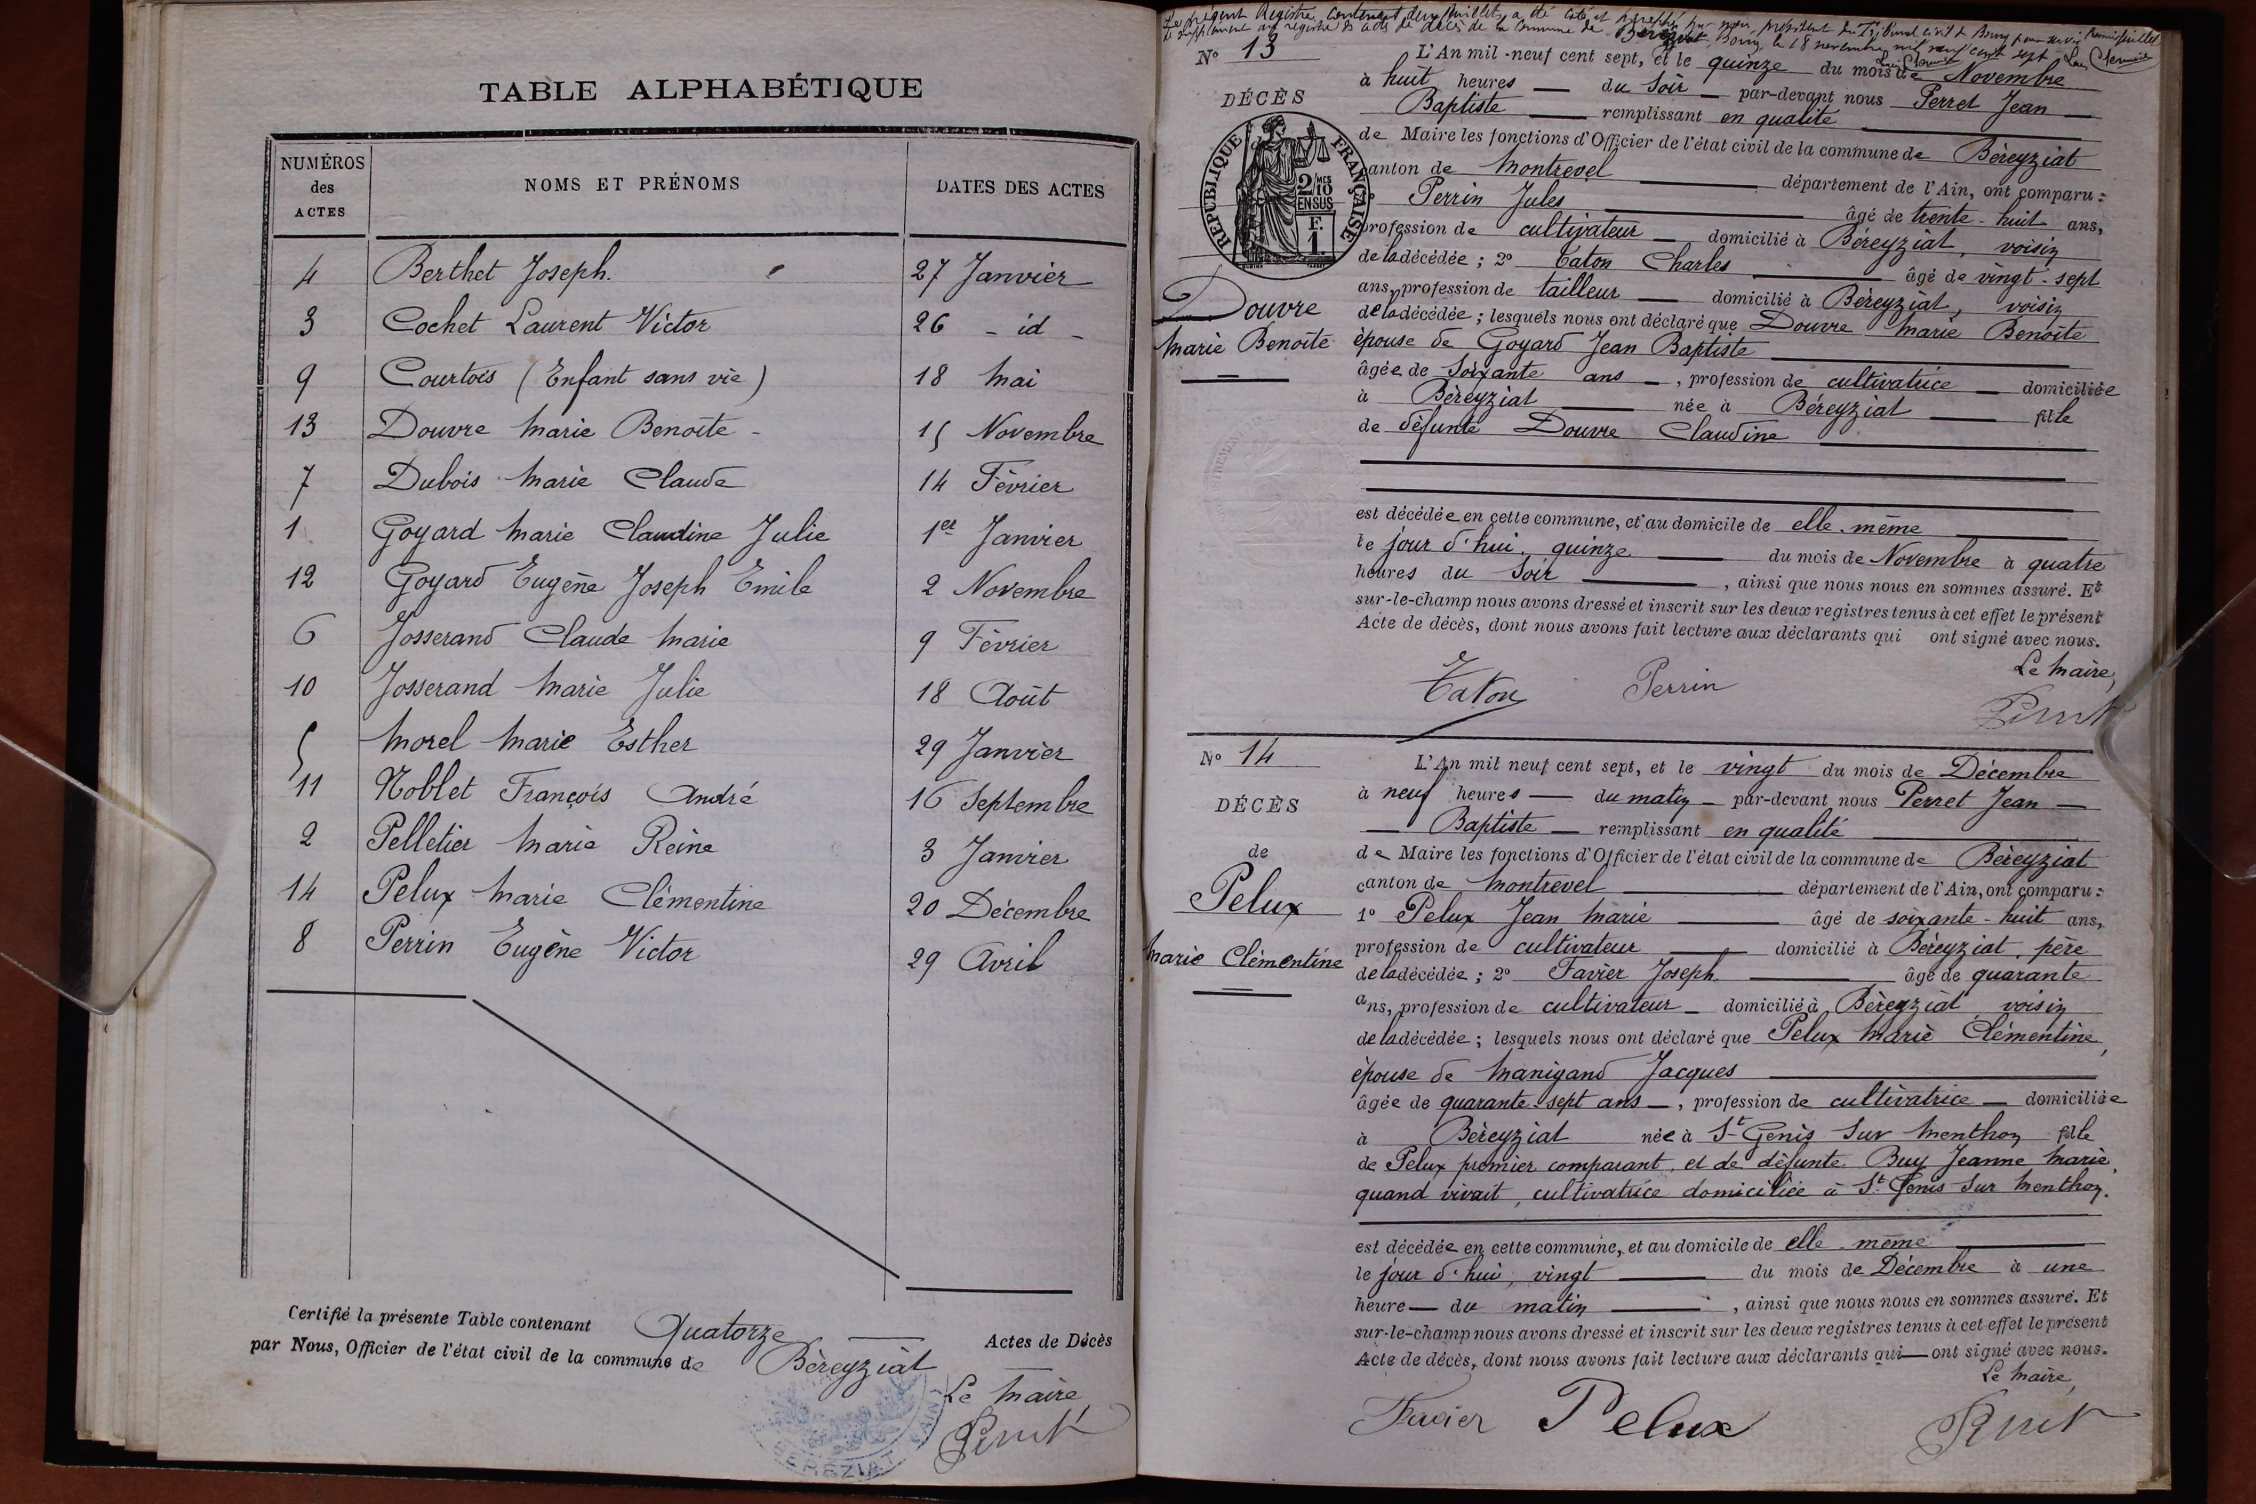 TABLE ALPHABÉTIQUE
NUMÉROS des ACTES
NOMS ET PRÉNOMS
DATES DES ACTES
4 Berthet Joseph. 27 Janvier
3 Cochet Laurent Victor 26 - id -
9 Courtois (Enfant sans vie) 18 Mai
13 Douvre Marie Benoîte - 15 Novembre
7 Dubois Marie Claude 14 Février
1 Goyard Marie Claudine Julie 1er Janvier
12 Goyard Eugène Joseph Emile 2 Novembre
6 Josserand Claude Marie 9 Février
10 Josserand Marie Julie 18 Août
5 Morel Marie Esther 29 Janvier
11 Noblet François André 16 Septembre
2 Pelletier Marie Reine 3 Janvier
14 Pelux Marie Clémentine 20 Décembre
8 Perrin Eugène Victor 29 Avril
Certifié la présente Table contenant Quatorze Actes de Décès
par Nous, Officier de l'état civil de la commune de Béreyziat
Le Maire,
Perret
Le présent Registre contenant deux feuillets a été coté et paraphé par nous, président du Tribunal civil de Bourg pour servir
de supplément au registre des actes de décès de la commune de Béreyziat. Bourg, le 18 novembre mil neuf cent sept
No 13
DÉCÈS
RÉPUBLIQUE FRANÇAISE
2/10 EN SUS
F. 1.
Douvre
Marie Benoîte
L'An mil-neuf cent sept, et le quinze du mois de Novembre
à huit heures du Soir par-devant nous Perret Jean
Baptiste remplissant en qualité
de Maire les fonctions d'Officier de l'état civil de la commune de Béreyziat
canton de Montrevel département de l'Ain, ont comparu :
Perrin Jules âgé de trente-huit ans,
profession de cultivateur domicilié à Béreyziat, voisin
de la décédée ; 2o Caton Charles âgé de vingt-sept
ans, profession de tailleur domicilié à Béreyziat, voisin
de la décédée ; lesquels nous ont déclaré que Douvre Marie Benoîte
épouse de Goyard Jean Baptiste
âgée de soixante ans, profession de cultivatrice domiciliée
à Béreyziat née à Béreyziat fille
de défunte Douvre Claudine
est décédée en cette commune, et au domicile de elle-même
le jour d'hui, quinze du mois de Novembre à quatre
heures du Soir, ainsi que nous nous en sommes assuré. Et
sur-le-champ nous avons dressé et inscrit sur les deux registres tenus à cet effet le présent
Acte de décès, dont nous avons fait lecture aux déclarants qui ont signé avec nous.
Le Maire,
Caton Perrin Perret
No 14
DÉCÈS
de
Pelux
Marie Clémentine
L'An mil neuf cent sept, et le vingt du mois de Décembre
à neuf heures du matin par-devant nous Perret Jean
Baptiste remplissant en qualité
de Maire les fonctions d'Officier de l'état civil de la commune de Béreyziat
canton de Montrevel département de l'Ain, ont comparu :
1o Pelux Jean Marie âgé de soixante-huit ans,
profession de cultivateur domicilié à Béreyziat, père
de la décédée ; 2o Favier Joseph âgé de quarante
ans, profession de cultivateur domicilié à Béreyziat, voisin
de la décédée ; lesquels nous ont déclaré que Pelux Marie Clémentine,
épouse de Manigand Jacques
âgée de quarante-sept ans, profession de cultivatrice domiciliée
à Béreyziat née à St Genis sur Menthon fille
de Pelux premier comparant, et de défunte Buy Jeanne Marie,
quand vivait, cultivatrice domiciliée à St Genis sur Menthon.
est décédée en cette commune, et au domicile de elle-même
le jour d'hui, vingt du mois de Décembre à une
heure du matin, ainsi que nous nous en sommes assuré. Et
sur-le-champ nous avons dressé et inscrit sur les deux registres tenus à cet effet le présent
Acte de décès, dont nous avons fait lecture aux déclarants qui ont signé avec nous.
Le Maire,
Favier Pelux Perret